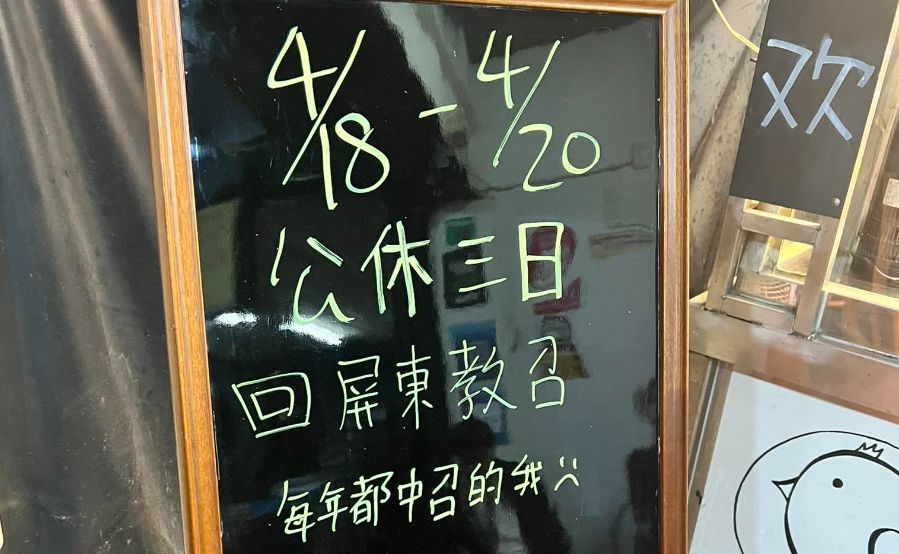 4/18-4/20
公休三日
回屏東教召
每年都中召的我:(
欢